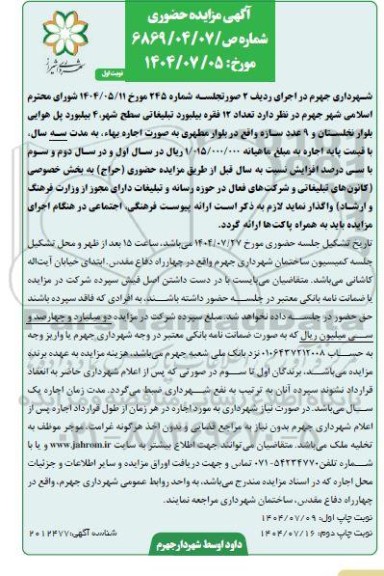 آگهی مزایده حضوری
شماره ص/۶۸۶۹/۰۴/۰۷
مورخ: ۱۴۰۴/۰۷/۰۵
نوبت اول
شهرداری جهرم در اجرای ردیف ۲ صورتجلسه شماره ۲۴۵ مورخ ۱۴۰۴/۰۵/۱۱ شورای محترم
اسلامی شهر جهرم در نظر دارد تعداد ۱۲ فقره بیلبورد تبلیغاتی سطح شهر، ۴ بیلبورد پل هوایی
بلوار نخلستان و ۹ عدد سازه واقع در بلوار مطهری به صورت اجاره بهاء، به مدت سه سال،
با قیمت پایه اجاره به مبلغ ماهیانه ۱/۰۱۵/۰۰۰/۰۰۰ ریال در سال اول و در سال دوم و سوم
با سی درصد افزایش نسبت به سال قبل از طریق مزایده حضوری (حراج) به بخش خصوصی
(کانون‌های تبلیغاتی و شرکت‌های فعال در حوزه رسانه و تبلیغات دارای مجوز از وزارت فرهنگ
و ارشاد) واگذار نماید لازم به ذکر است ارائه پیوست فرهنگی، اجتماعی در هنگام اجرای
مزایده باید به همراه پاکت‌ها ارائه گردد.
تاریخ تشکیل جلسه حضوری مورخ ۱۴۰۴/۰۷/۲۷ می‌باشد. ساعت ۱۵ بعد از ظهر و محل تشکیل
جلسه کمیسیون ساختمان شهرداری جهرم واقع در چهارراه دفاع مقدس، ابتدای خیابان آیت‌اله
کاشانی می‌باشد. متقاضیان می‌بایست با در دست داشتن اصل فیش سپرده شرکت در مزایده
یا ضمانت نامه بانکی معتبر در جلسه حضور داشته باشند. به افرادی که فاقد سپرده باشند
حق حضور در جلسه داده نخواهد شد. مبلغ سپرده شرکت در مزایده دو میلیارد و چهارصد و
سی میلیون ریال که به صورت ضمانت نامه بانکی معتبر در وجه شهرداری جهرم یا واریز وجه
به حساب ۰۱۰۶۴۳۷۲۱۲۰۰۸ نزد بانک ملی شعبه جهرم می‌باشد، هزینه مزایده به عهده برنده
مزایده می‌باشد، برندگان اول تا سوم در صورتی که پس از اعلام شهرداری حاضر به انعقاد
قرارداد نشوند سپرده آنان به ترتیب به نفع شهرداری ضبط می‌گردد. مدت زمان اجاره یک
سال می‌باشد. در صورت نیاز شهرداری به مورد اجاره در هر زمان از طول قرارداد اجاره پس از
اعلام شهرداری جهرم بدون نیاز به مراجع قضایی و بدون اخذ هرگونه غرامت، موجر موظف به
تخلیه ملک می‌باشد. متقاضیان می‌توانند جهت اطلاع بیشتر به سایت www.jahrom.ir و یا با
شماره تلفن ۵۴۲۳۴۷۷۰-۰۷۱ تماس و جهت دریافت اوراق مزایده و سایر اطلاعات و جزئیات
محل اجاره که در اسناد مزایده مندرج می‌باشد، به واحد روابط عمومی شهرداری جهرم، واقع در
چهارراه دفاع مقدس، ساختمان شهرداری مراجعه نمایند.
نوبت چاپ اول: ۱۴۰۴/۰۷/۰۹
نوبت چاپ دوم: ۱۴۰۴/۰۷/۱۶
شناسه آگهی: ۲۰۱۲۴۷۷
داود اوسط شهردار جهرم